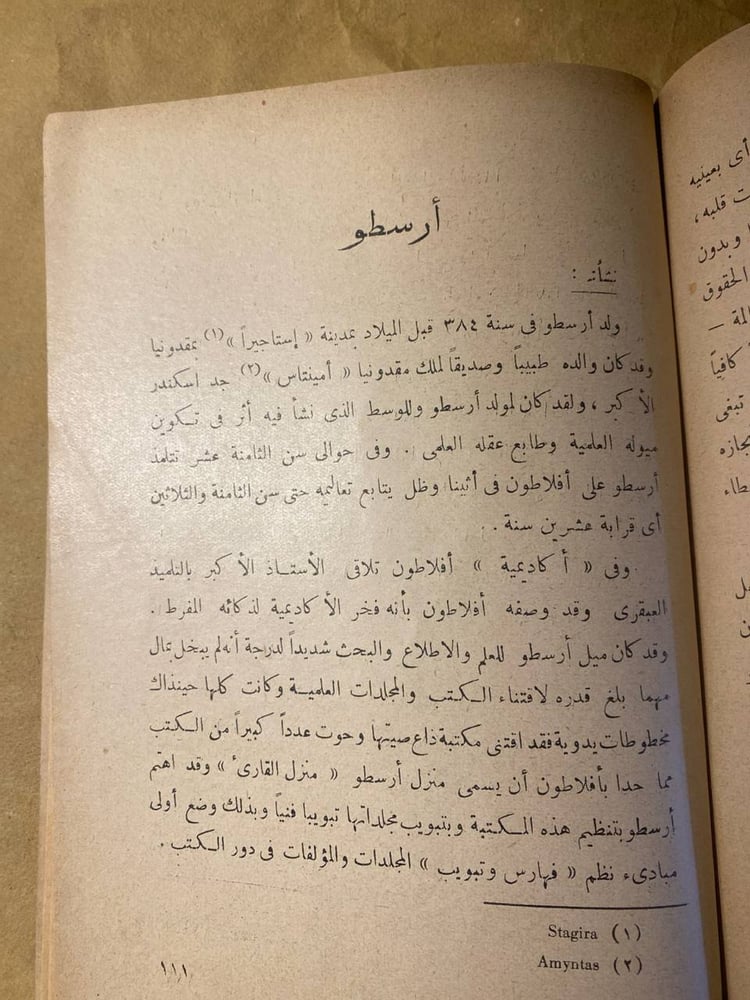 أرسطو
نشأته :
ولد أرسطو فى سنة ٣٨٤ قبل الميلاد بمدينة « إستاجيراً » (١) بمقدونيا
وقد كان والده طبيباً وصديقاً لملك مقدونيا « أمينتاس » (٢) جد اسكندر
الأكبر ، ولقد كان لمولد أرسطو وللوسط الذى نشأ فيه أثر فى تكوين
ميوله العلمية وطابع عقله العلمى . وفى حوالى سن الثامنة عشر تتلمذ
أرسطو على أفلاطون فى أثينا وظل يتابع تعاليمه حتى سن الثامنة والثلاثين
أى قرابة عشرين سنة . .
وفى « أكاديمية » أفلاطون تلاقى الأستاذ الأكبر بالتلميد
العبقرى وقد وصفه أفلاطون بأنه فخر الأكاديمية لذكائه المفرط .
وقد كان ميل أرسطو للعلم والاطلاع والبحث شديداً لدرجة أنه لم يبخل بمال
مهما بلغ قدره لاقتناء الكتب والمجلدات العلمية وكانت كلها حينذاك
مخطوطات يدوية فقد اقتنى مكتبة ذاع صيتها وحوت عدداً كبيراً من الكتب
مما حدا بأفلاطون أن يسمى منزل أرسطو « منزل القارئ » وقد اهتم
أرسطو بتنظيم هذه المكتبة وبتبويب مجلداتها تبويبا فنياً وبذلك وضع أولى
مبادىء نظم « فهارس وتبويب » المجلدات والمؤلفات فى دور الكتب .
(١) Stagira
(٢) Amyntas
١١١
أى بعينيه
ت قلبه ،
وبدون
الحقوق
لمة –
كافياً
تبغى
يجازه
طاء